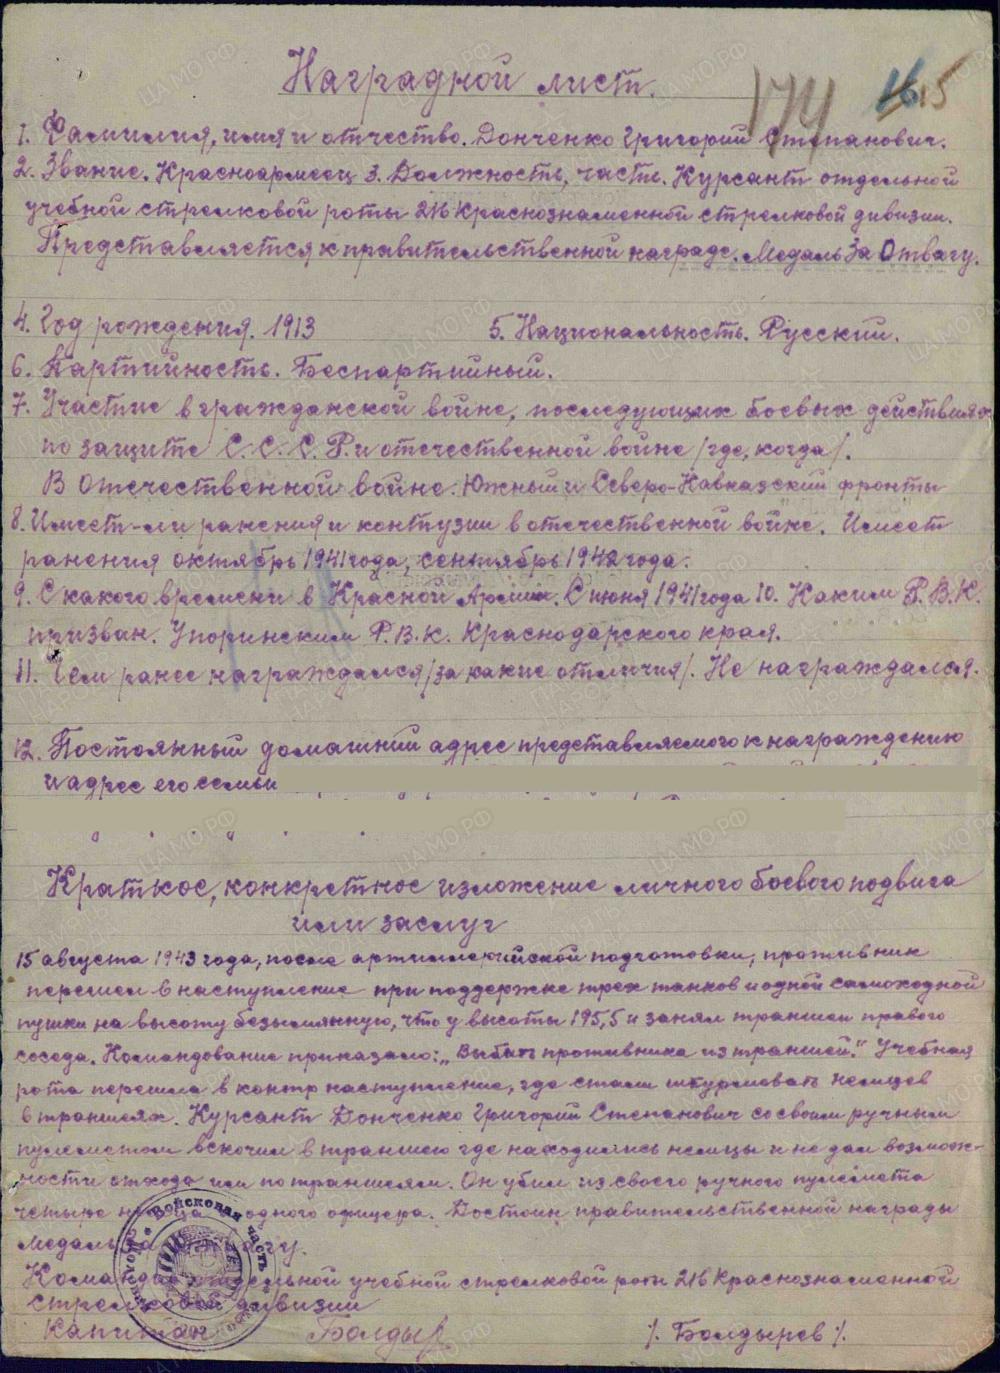 Наградной лист.
174 16.5
1. Фамилия, имя и отчество. Донченко Григорий Степанович.
2. Звание. Красноармеец 3. Должность, часть. Курсант отдельной
учебной стрелковой роты 216 Краснознаменной стрелковой дивизии.
Представляется к правительственной награде. Медаль За Отвагу.
4. Год рождения. 1913 5. Национальность. Русский.
6. Партийность. Беспартийный.
7. Участие в гражданской войне, последующих боевых действиях
по защите С.С.С.Р. и отечественной войне /где, когда/.
В Отечественной войне. Южный и Северо-Кавказский фронты
8. Имеет-ли ранения и контузии в отечественной войне. Имеет
ранения октябрь 1941 года, сентябрь 1942 года.
9. С какого времени в Красной Армии. С июня 1941 года 10. Каким Р.В.К.
призван. Упоринским Р.В.К. Краснодарского края.
11. Чем ранее награждался /за какие отличия/. Не награждался.
12. Постоянный домашний адрес представляемого к награждению
и адрес его семьи
Краткое, конкретное изложение личного боевого подвига
или заслуг
15 августа 1943 года, после артиллерийской подготовки, противник
перешел в наступление при поддержке трех танков и одной самоходной
пушки на высоту безымянную, что у высоты 195,5 и занял траншеи правого
соседа. Командование приказало: „Выбить противника из траншей." Учебная
рота перешла в контрнаступление, где стали штурмовать немцев
в траншеях. Курсант Донченко Григорий Степанович со своим ручным
пулеметом вскочил в траншею где находились немцы и не дал возмож-
ности отхода им по траншеям. Он убил из своего ручного пулемета
четыре одного офицера. Достоин правительственной награды
Медаль
отдельной учебной стрелковой роты 216 Краснознаменной
стрелковой дивизии
Капитан Болдыр /. Болдырев /.
Войсковая часть